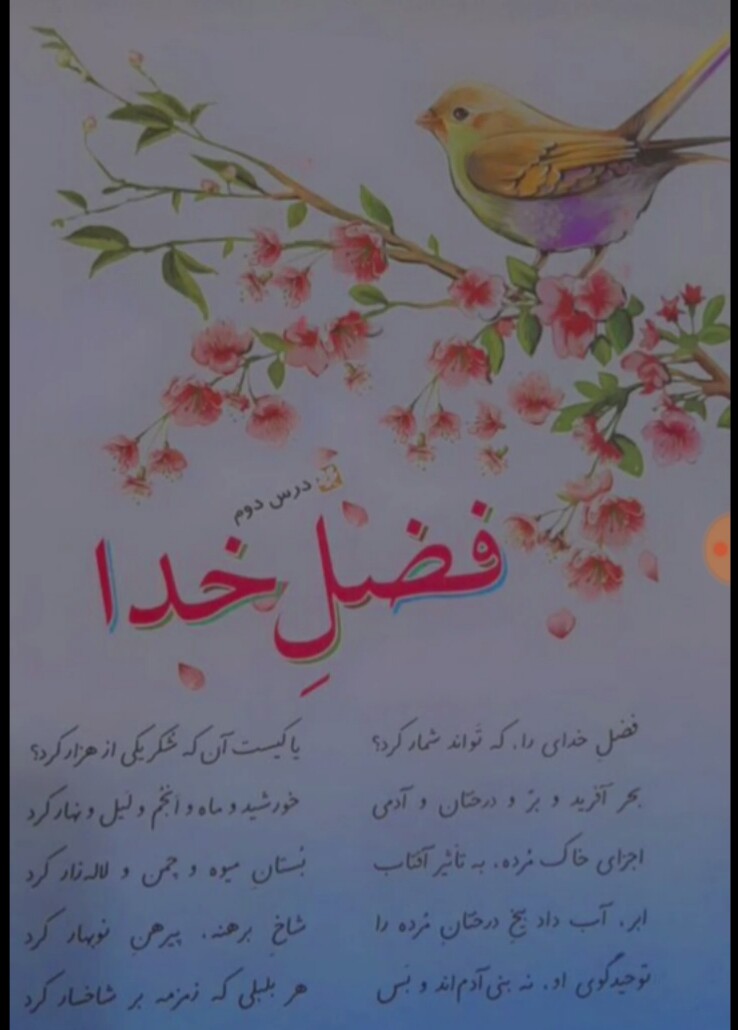 درس دوم
فضلِ خدا
فضلِ خدای را، که تَواند شمار کرد؟ یا کیست آن که شُکرِ یکی از هزار کرد؟
بحر آفرید و بَرّ و درختان و آدمی خورشید و ماه و انجُم و لَیل و نهار کرد
اجزای خاک مُرده، به تأثیر آفتاب بُستانِ میوه و چمن و لاله‌زار کرد
ابر، آب داد بیخِ درختانِ مُرده را شاخِ برهنه، پیرهنِ نوبهار کرد
توحیدگوی او، نه بنی آدم‌اند و بَس هر بلبلی که زمزمه بر شاخسار کرد